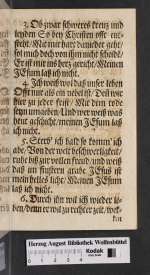 3. Ob zwar schweres kreuz und
leyden / So bey Christen offt ent-
steht / Mit mir hart darnieder geht /
sol mich doch von ihm nicht scheiden /
Er ist mir ins herz gericht / Meinen
JEsum laß ich nicht.
4. Ich weiß wol daß unser leben
Offt nur als ein nebel ist / Denn wir
hier zu jeder frist / Mit dem tode
seyn umgeben / Und wer weiß was
heut geschicht / meinen JEsum laß
ich nicht.
5. Sterb' ich bald so komm' ich
abe / Von der welt beschwerligkeit /
ruhe biß zur vollen freud / und weiß
daß im finstern grabe JEsus ist
mein helles licht / Meinen JEsum
laß ich nicht.
6. Durch ihn wil ich wieder le-
ben / denn er wil zu rechter zeit / wek-
ken
Herzog August Bibliothek Wolfenbüttel